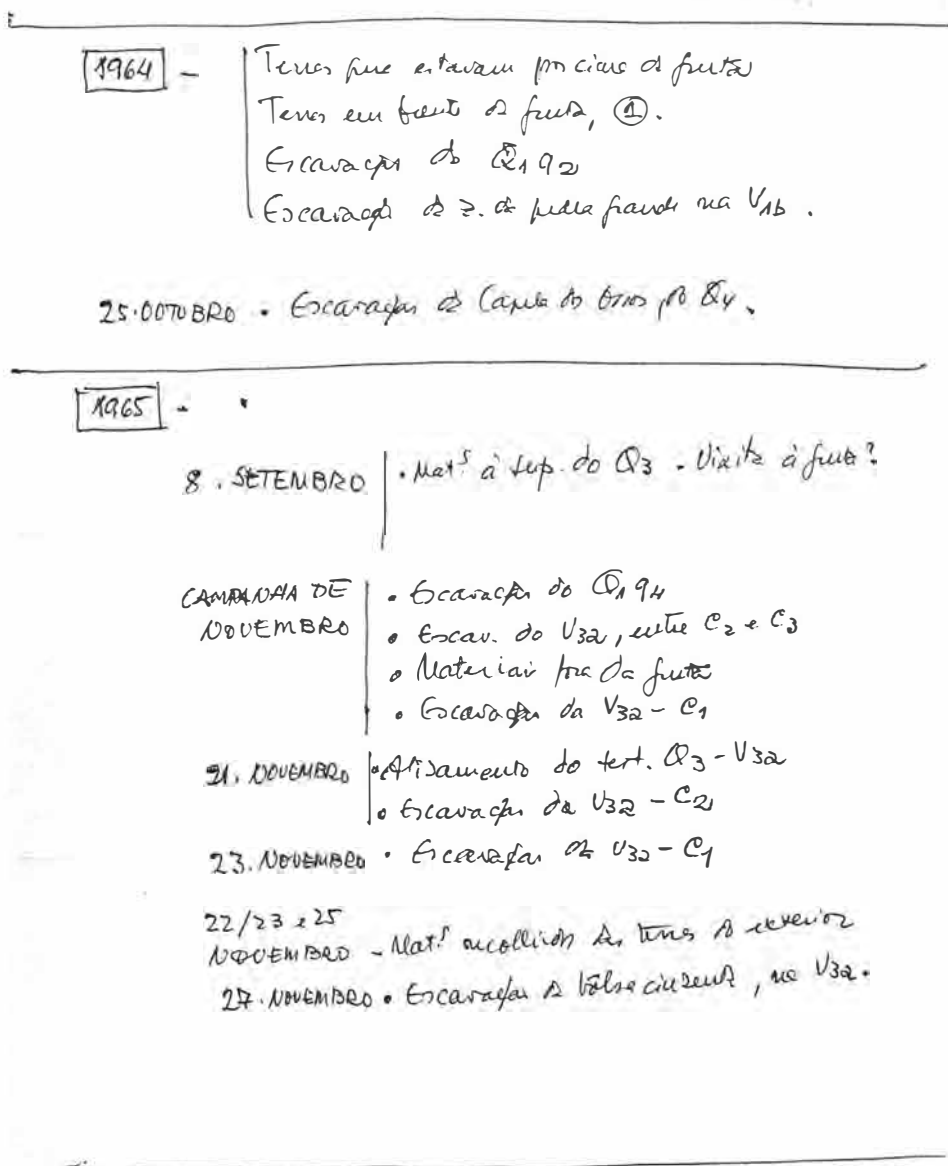 1964 - Terras que estavam por cima da gruta
Terras em frente da gruta, ①.
Escavação do Q1 q2
Escavação da z. da pedra grande na V1b.
25. OUTUBRO • Escavação da Camada das terras do Q4.
1965 -
8. SETEMBRO • Mat.s à sup. do Q3 - Visita à gruta?
CAMPANHA DE • Escavação do Q1 q4
NOVEMBRO • Escav. do V3a, entre C2 e C3
• Materiais fora da gruta
• Escavação da V3a - C1
21. NOVEMBRO • Alisamento do test. Q3 - V3a
• Escavação da V3a - C2
23. NOVEMBRO • Escavação da V3a - C1
22/23 e 25
NOVEMBRO - Mat.s recolhidos das terras do exterior
27. NOVEMBRO • Escavação da bolsa cinzenta, na V3a.